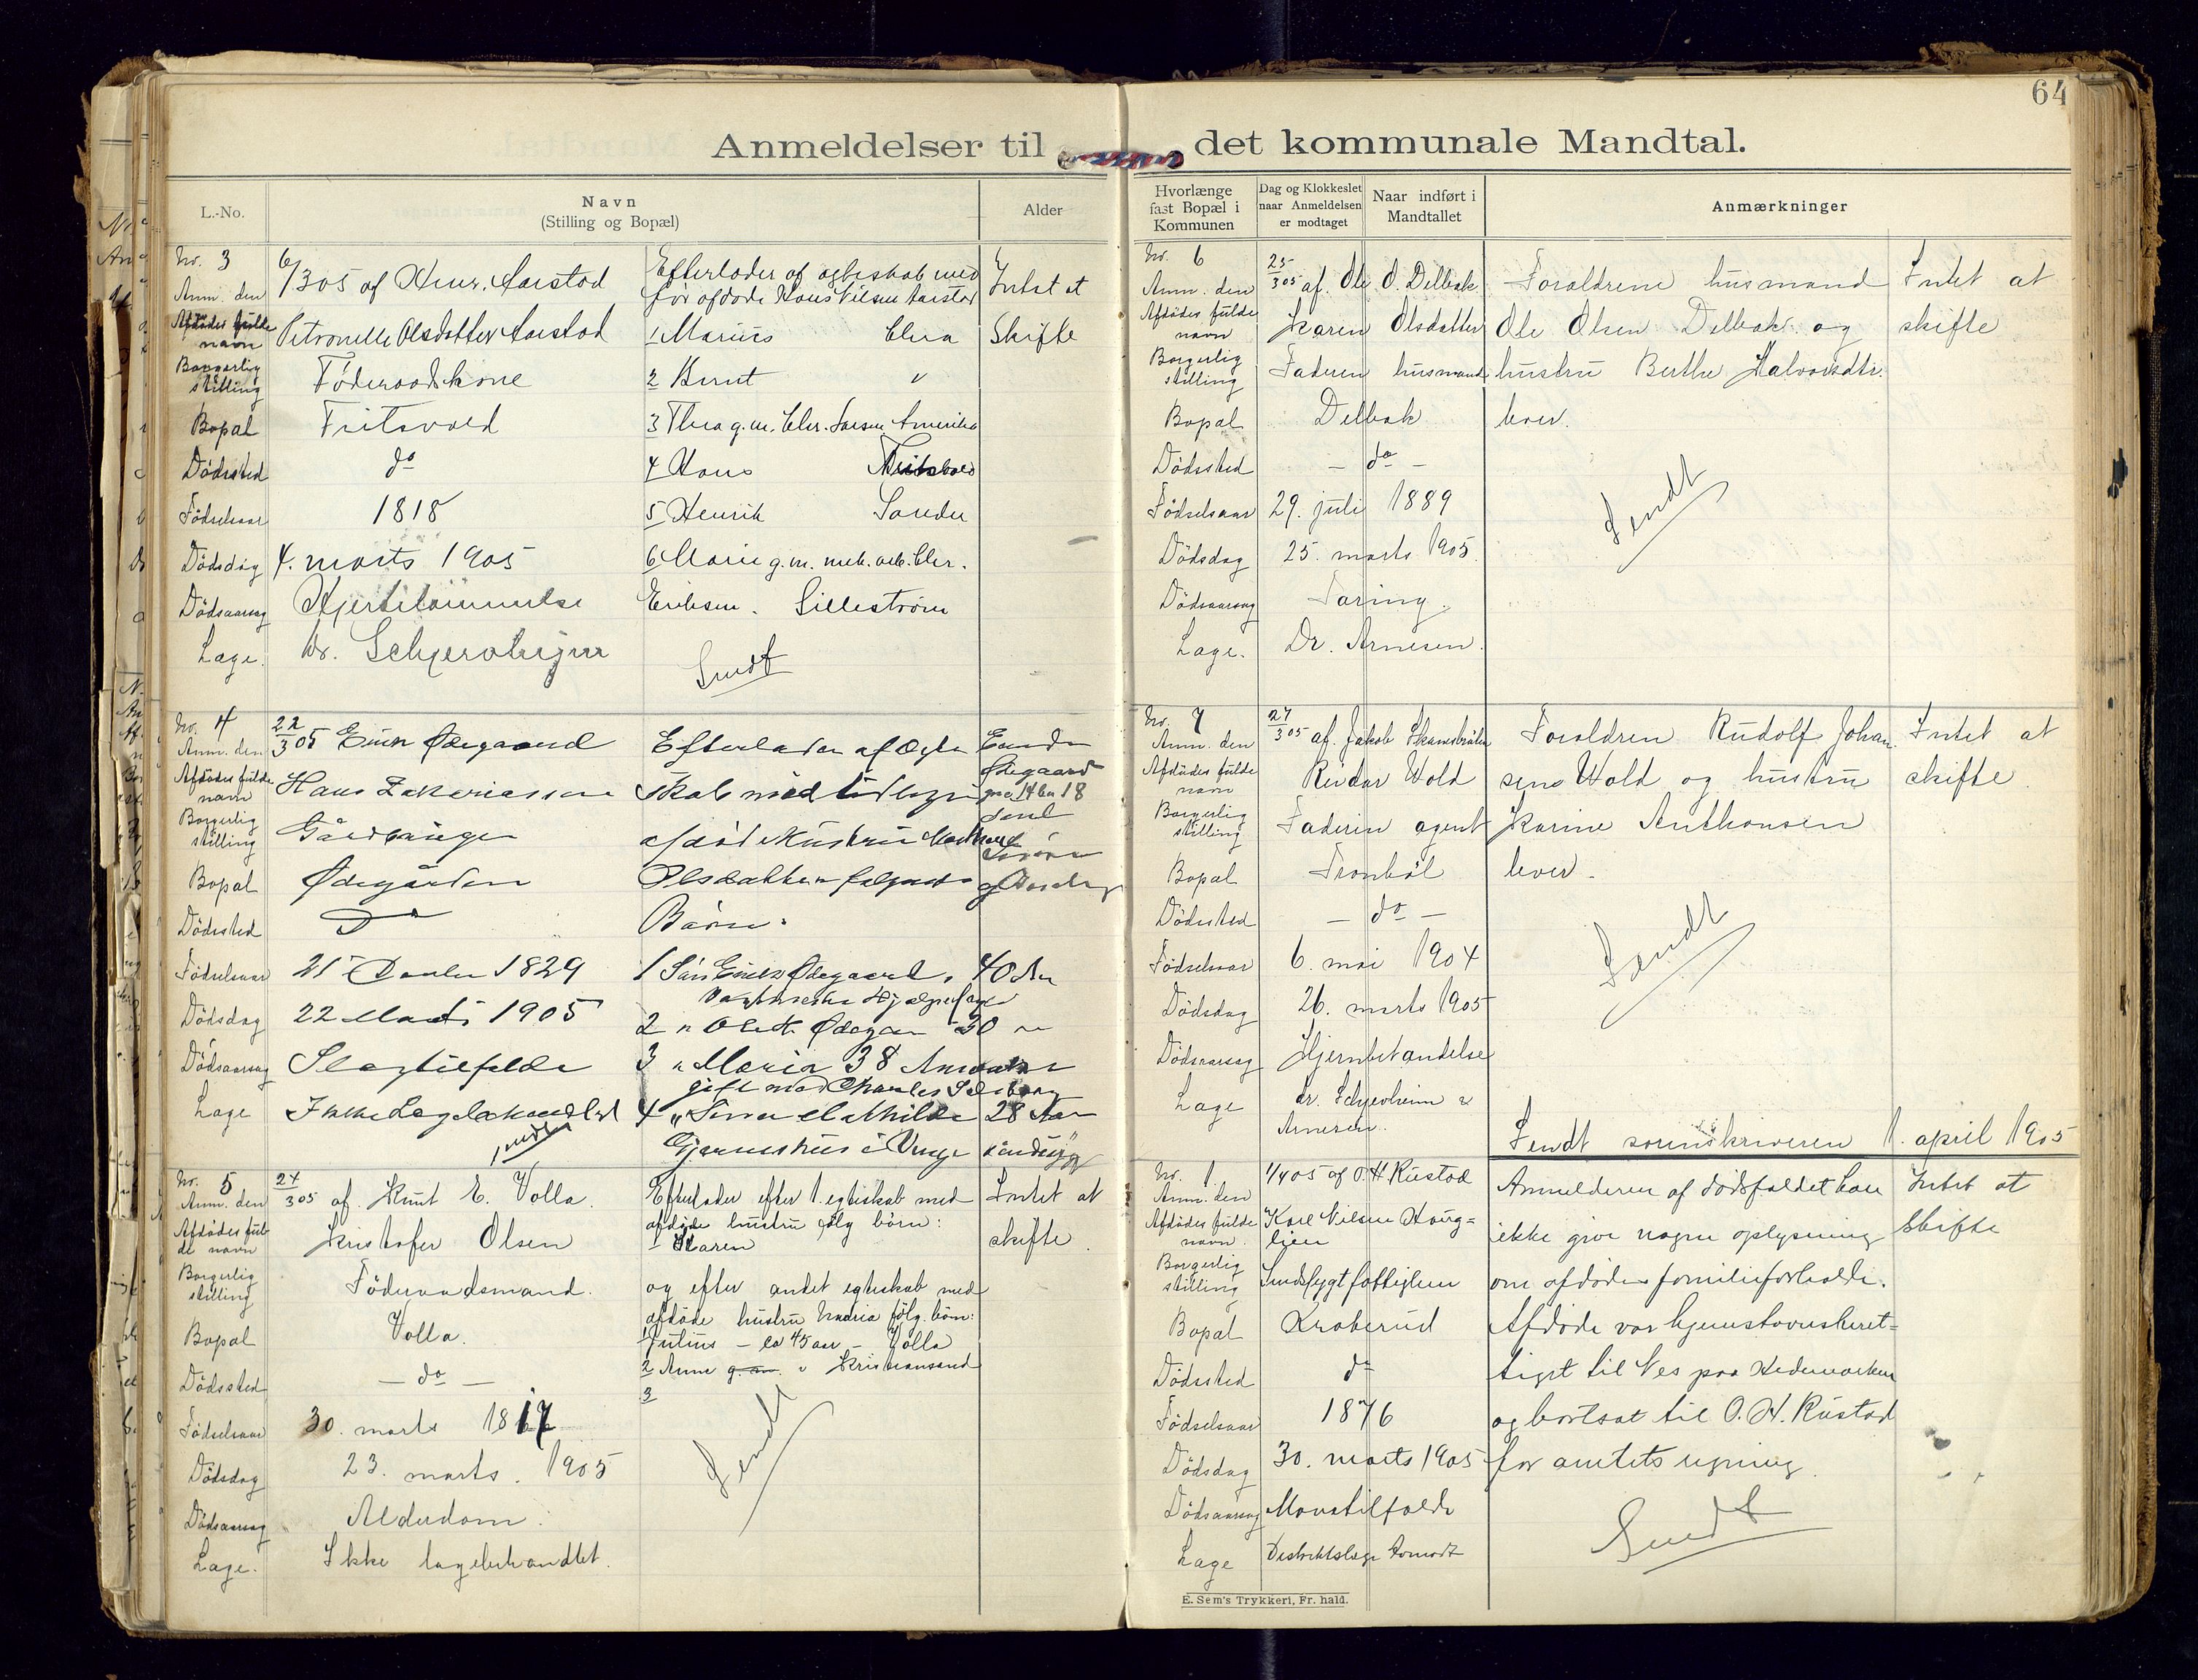 64
Anmeldelser til det kommunale Mandtal.
L.-No.
Navn
(Stilling og Bopæl)
Alder
Hvorlænge
fast Bopæl i
Kommunen
Dag og Klokkeslet
naar Anmeldelsen
er modtaget
Naar indført i
Mandtallet
Anmærkninger
No. 3
Anm. den 6/3 05 af Henr. Aarstad
Afdødes fulde navn Petronelle Olsdatter Aarstad
Borgerlig stilling Føderaadskone
Bopæl Fritsvold
Dødssted do
Fødselsaar 1818
Dødsdag 4. marts 1905
Dødsaarsag Hjertelammelse
Læge. Dr.
Efterlader af ægteskab med
før afdøde Hans Nilsen Aarstad
1 Marius
2 Bernt "
3 Thea g.m. Chr. Larsen Amerika
4 Hans Fritsvold
5 Henrik Sander
6 Marie g.m. mek. arb. Chr.
Eriksen. Lillestrøm
Sendt
Intet at
Skifte
No. 4
Anm. den 22/3 05 Ødegaard
Afdødes fulde navn Hans Zakariassen
Borgerlig stilling Gårdbruger
Bopæl Ødegården
Dødssted Do
Fødselsaar 21 1829
Dødsdag 22 Marts 1905
Dødsaarsag Slagtilfælde
Læge Ikke Lægebehandlet
Sendt
Efterlader af Ægte
skab med
afdød Hustru
Olsdatter følgende
Børn:
1 Søn Ødegaard, 40 Aar
2 " Ødegaard 30 "
3 " Maria 38 Amerika
gift med Charles
4 " Mathilde 28 Aar
Ødegaard
gno 14 bno 18
No. 5
Anm. den 24/3 05 af Knut E. Volla.
Afdødes fulde navn Kristofer Olsen
Borgerlig stilling Føderaadsmand.
Bopæl Volla.
Dødssted — do —
Fødselsaar 30. marts 1817
Dødsdag 23. marts. 1905
Dødsaarsag Alderdom.
Læge. Ikke lægebehandlet.
Efterlader efter 1. egteskab med
afdøde hustru følg børn:
1 Karen
og efter andet egteskab med
afdøde hustru Maria følg. børn:
1 Julius – ca 45 aar – Volla
2 Anne g. m. " Kristiansand
3
Sendt
Intet at
skifte.
No. 6
Anm. den 25/3 05 af. Ole O. Delbæk.
Afdødes fulde navn Karen Olsdatter
Borgerlig stilling Faderen husmand
Bopæl Delbæk
Dødssted — do —
Fødselsaar 29. juli 1889
Dødsdag 25. marts 1905.
Dødsaarsag Tæring.
Læge. Dr. Arnesen.
Forældrene husmand
Ole Olsen Delbæk og
hustru Berthe Halvorsdtr.
lever.
Sendt
Intet at
skifte
No. 7
Anm. den 27/3 05 af. Jakob
Afdødes fulde navn Reidar Wold
Borgerlig stilling Faderen agent
Bopæl Tronbøl
Dødssted — do —
Fødselsaar 6. mai 1904
Dødsdag 26. marts 1905
Dødsaarsag Hjernebetændelse
Læge dr.
Arnesen.
Forældren Rudolf Johan
sen Wold og hustru
Karine Anthonsen
lever.
Sendt
Intet at
skifte.
Sendt sorenskriveren 1. april 1905
No. 1.
Anm. den 1/4 05 af O. H. Rustad
Afdødes fulde navn. Karl Nilsen Haug=
lien
Borgerlig stilling Sindssygt fattiglem
Bopæl Kraberud
Dødssted do
Fødselsaar 1876
Dødsdag 30. marts 1905
Dødsaarsag Mavetilfælde
Læge Distriktslæge
Anmelderen af dødsfaldet kan
ikke give nogen oplysning
om afdødes familieforholde.
Afdøde var hjemstavnsberet=
tiget til Nes paa Hedemarken
og bortsat til O. H. Rustad
for amtets regning.
Sendt
Intet at
Skifte
E. Sem's Trykkeri, Fr.hald.